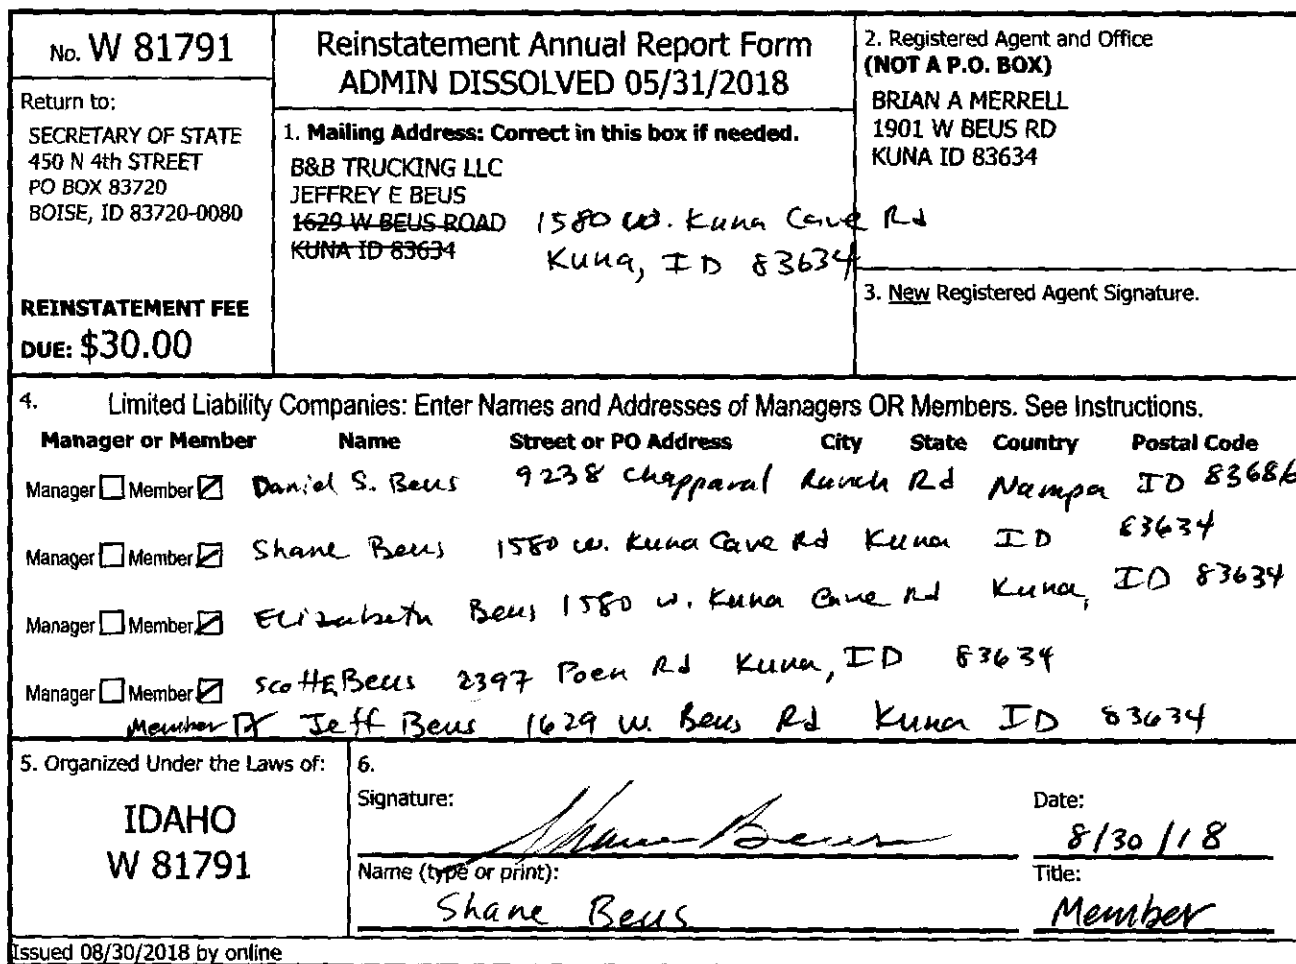 No. W 81791
Return to:
SECRETARY OF STATE
450 N 4th STREET
PO BOX 83720
BOISE, ID 83720-0080
REINSTATEMENT FEE
DUE: $30.00
Reinstatement Annual Report Form
ADMIN DISSOLVED 05/31/2018
1. Mailing Address: Correct in this box if needed.
B&B TRUCKING LLC
JEFFREY E BEUS
1629 W BEUS ROAD 1580 W. Kuna Cave Rd
KUNA ID 83634 Kuna, ID 83634
2. Registered Agent and Office
(NOT A P.O. BOX)
BRIAN A MERRELL
1901 W BEUS RD
KUNA ID 83634
3. New Registered Agent Signature.
4. Limited Liability Companies: Enter Names and Addresses of Managers OR Members. See Instructions.
Manager or Member Name Street or PO Address City State Country Postal Code
Manager Member Daniel S. Beus 9238 Chapparal Ranch Rd Nampa ID 83686
Manager Member Shane Beus 1580 W. Kuna Cave Rd Kuna ID 83634
Manager Member Elizabeth Beus 1580 W. Kuna Cave Rd Kuna, ID 83634
Manager Member Scott E Beus 2397 Poen Rd Kuna, ID 83634
Member Jeff Beus 1629 W. Beus Rd Kuna ID 83634
5. Organized Under the Laws of:
IDAHO
W 81791
6.
Signature: Shane Beus
Date:
8/30/18
Name (type or print):
Shane Beus
Title:
Member
Issued 08/30/2018 by online